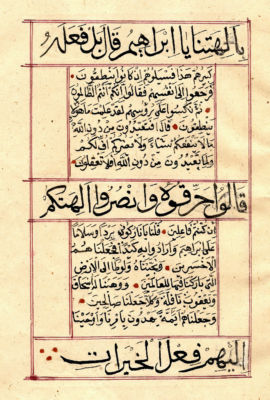 بالهتنا يا ابراهيم قال بل فعله
كبيرهم هذا فسئلوهم ان كانوا ينطقون
فرجعوا الى انفسهم فقالوا انكم انتم الظالمون
ثم نكسوا على رؤسهم لقد علمت ما هؤلاء
ينطقون قال افتعبدون من دون الله
ما لا ينفعكم شيئا ولا يضركم اف لكم
ولما تعبدون من دون الله افلا تعقلون
قالوا حرقوه وانصروا الهتكم
ان كنتم فاعلين قلنا يا نار كوني بردا وسلاما
على ابراهيم وارادوا به كيدا فجعلناهم
الاخسرين ونجيناه ولوطا الى الارض
التي باركنا فيها للعالمين ووهبنا له اسحاق
ويعقوب نافلة وكلا جعلنا صالحين
وجعلناهم ائمة يهدون بامرنا واوحينا
اليهم فعل الخيرات